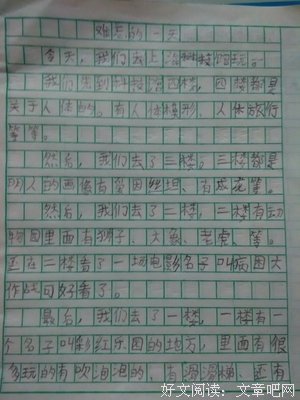 难忘的一天
今天,我们去上海科技馆玩。
我们先到科技馆四楼,四楼都是
关于人体的。有人体模形、人体旅行
等等。
然后,我们去了三楼,三楼都是
明人的画像有爱因丝坦、有成龙等。
然后,我们去了二楼,二楼有动
物园里面有狮子、大象、老虎、等。
还在二楼看了一场电影名子叫病国大
作战可好看了。
最后,我们去了一楼,一楼有一
个名子叫彩红乐园的地方,里面有很
多玩的有吹泡泡的、有滑滑梯、还有
好文阅读:文章吧网